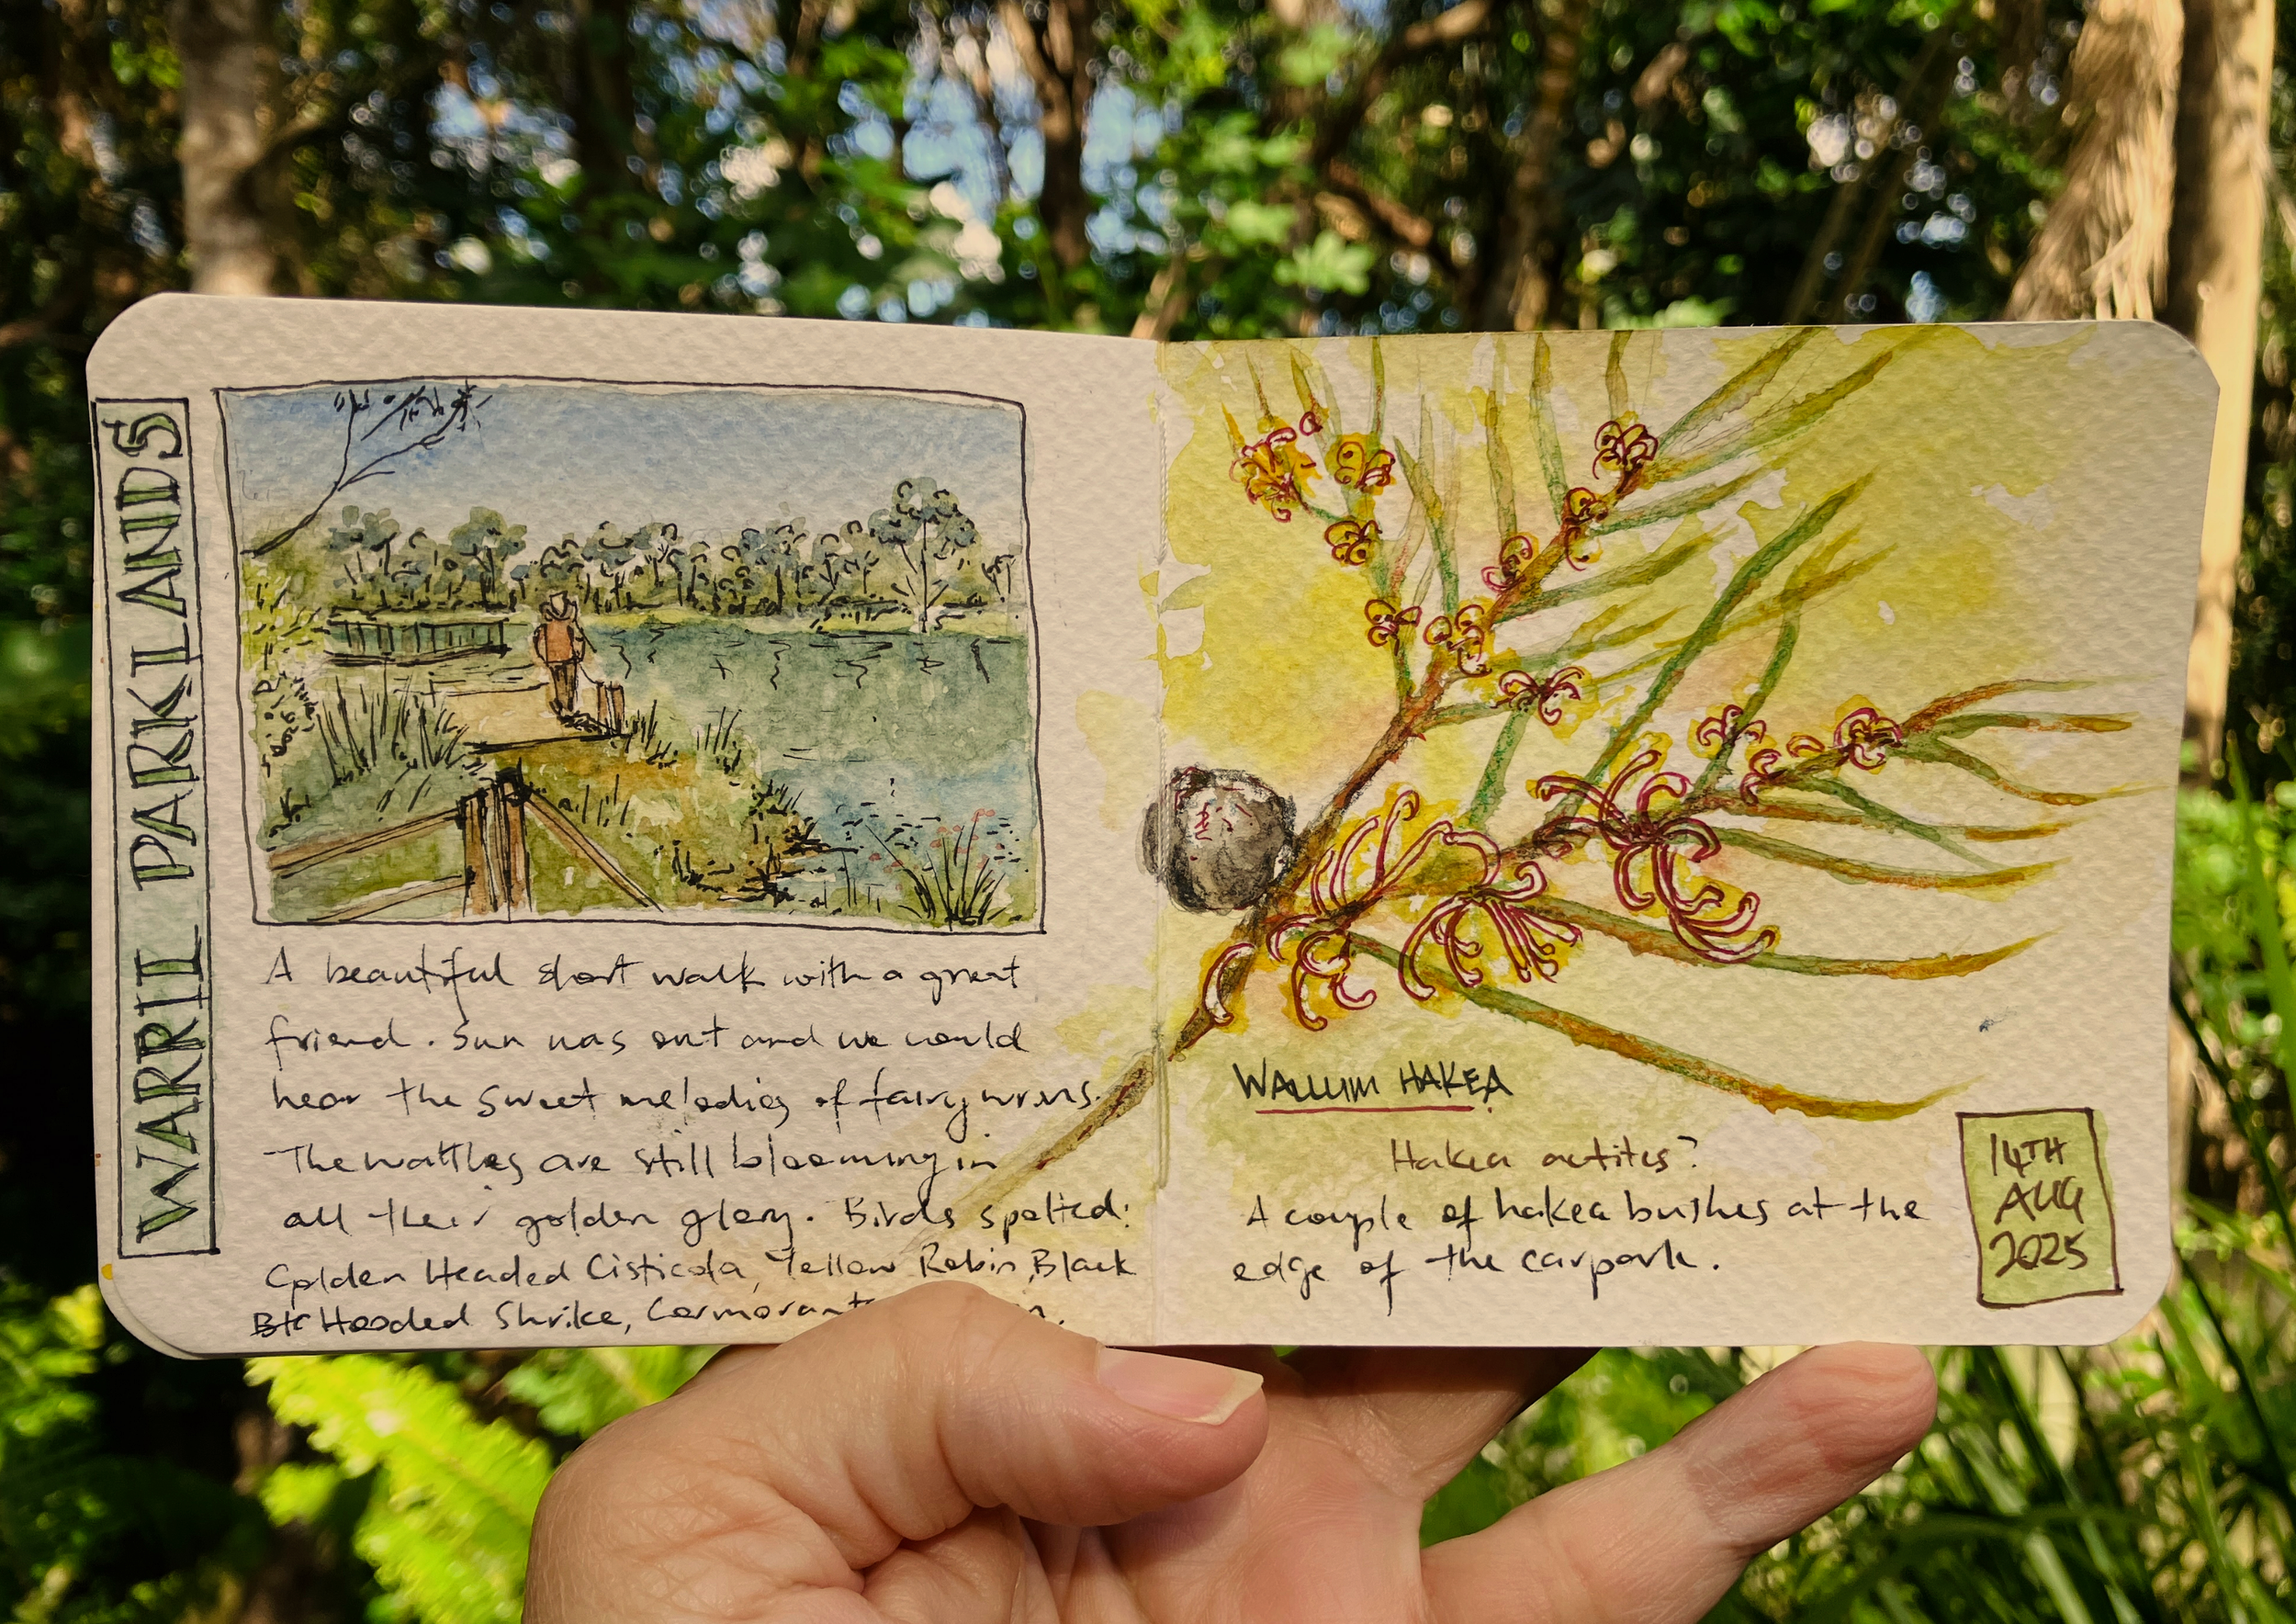 WARRIL PARKLANDS
A beautiful short walk with a great
friend. Sun was out and we could
hear the sweet melodies of fairy wrens.
The wattles are still blooming in
all their golden glory. Birds spotted:
Golden Headed Cisticola, Yellow Robin, Black
Hooded Shrike, Cormorant
WALLUM HAKEA
Hakea actites?
A couple of hakea bushes at the
edge of the carpark.
14TH
AUG
2025